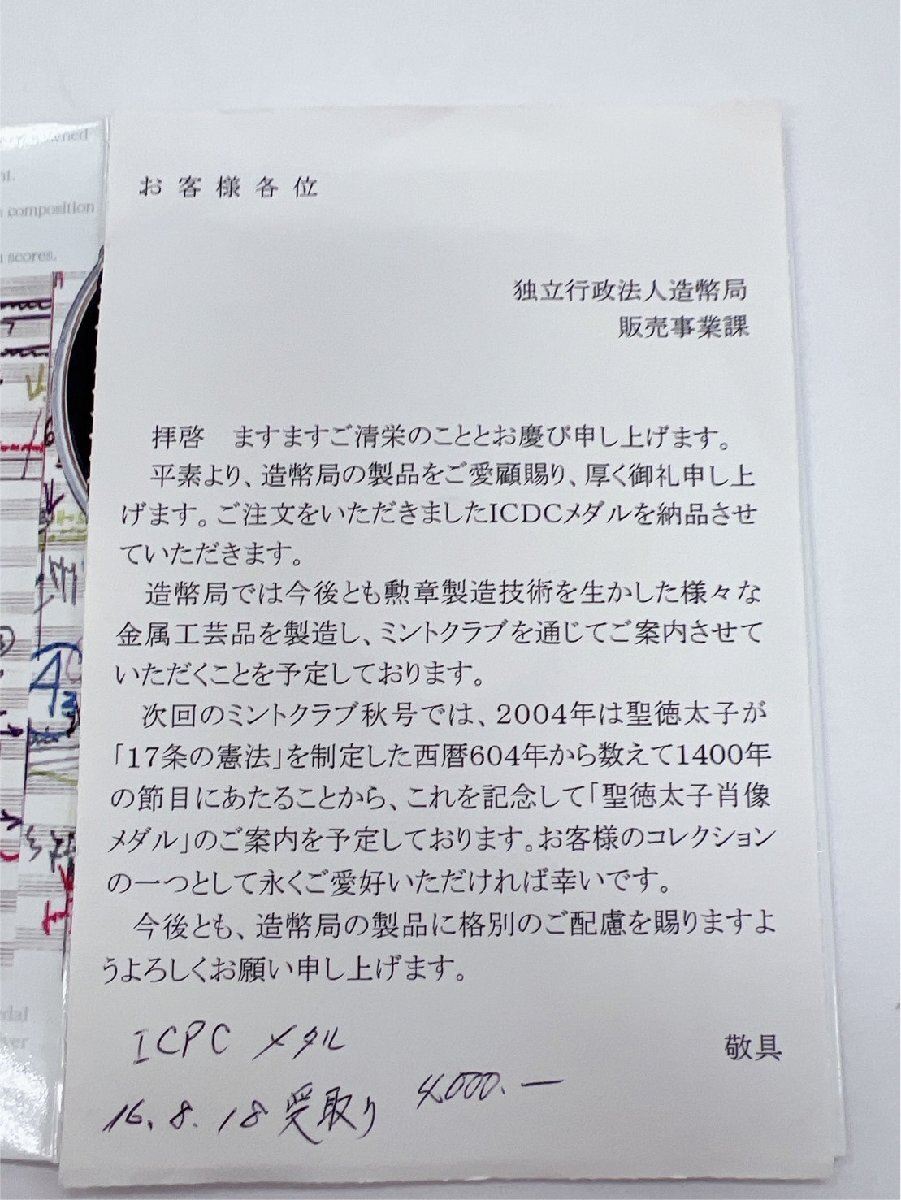 お客様各位
独立行政法人造幣局
販売事業課
拝啓　ますますご清栄のこととお慶び申し上げます。
平素より、造幣局の製品をご愛顧賜り、厚く御礼申し上
げます。ご注文をいただきましたICDCメダルを納品させ
ていただきます。
造幣局では今後とも勲章製造技術を生かした様々な
金属工芸品を製造し、ミントクラブを通じてご案内させて
いただくことを予定しております。
次回のミントクラブ秋号では、2004年は聖徳太子が
「17条の憲法」を制定した西暦604年から数えて1400年
の節目にあたることから、これを記念して「聖徳太子肖像
メダル」のご案内を予定しております。お客様のコレクション
の一つとして永くご愛好いただければ幸いです。
今後とも、造幣局の製品に格別のご配慮を賜りますよ
うよろしくお願い申し上げます。
敬具
ICPC メタル
16.8.18受取り 4,000.—
composition
scores.